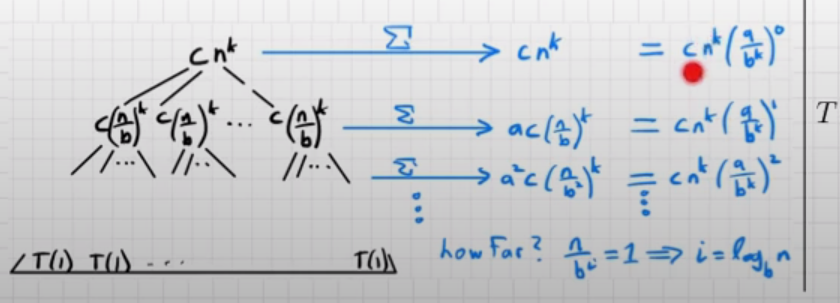 cn^k —Σ→ cn^k = cn^k(a/b^k)^0
c(n/b)^k c(n/b)^k ... c(n/b)^k —Σ→ ac(n/b)^k = cn^k(a/b^k)^1
T
... ... ... —Σ→ a^2c(n/b^2)^k = cn^k(a/b^k)^2
⋮ ⋮
T(1) T(1) ... T(1) how far? n/b^i = 1 ⇒ i = log_b n